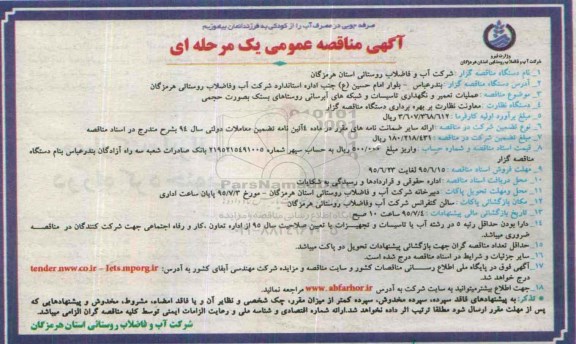 صرفه جویی در مصرف آب را از کودکی به فرزندانمان بیاموزیم
آگهی مناقصه عمومی یک مرحله ای
وزارت نیرو
شرکت آب و فاضلاب روستایی استان هرمزگان
۱_ نام دستگاه مناقصه گزار :شرکت آب و فاضلاب روستائی استان هرمزگان
۲_ آدرس دستگاه مناقصه گزار :بندرعباس – بلوار امام حسین (ع) جنب اداره استاندارد شرکت آب وفاضلاب روستائی هرمزگان
۳_ موضوع مناقصه : عملیات تعمیر و نگهداری تاسیسات و شبکه های آبرسانی روستاهای بستک بصورت حجمی
۴_ دستگاه نظارت: معاونت نظارت بر بهره برداری دستگاه مناقصه گزار
۵_ مبلغ برآورد اولیه کارفرما : ۳/۶۰۷/۳۶۸/۶۱۷ ریال
۶_ نوع تضمین شرکت در مناقصه : ارائه سایر ضمانت نامه های مقرر در ماده ۴آئین نامه تضمین معاملات دولتی سال ۹۴ بشرح مندرج در اسناد مناقصه
۷_ مبلغ تضمین شرکت در مناقصه : ۱۸۰/۳۱۸/۴۳۱ ریال
۸_ قیمت اسناد مناقصه و شماره حساب : واریز مبلغ ۵۰۰/۰۰۰ ریال به حساب سپهر شماره بانک صادرات شعبه سه راه آزادگان بندرعباس بنام دستگاه
مناقصه گزار
۹_ مهلت فروش اسناد مناقصه : ۹۵/۶/۱۵ لغایت ۹۵/۶/۲۳
۱۰_ محل دریافت اسناد مناقصه : اداره حقوقی و قراردادها و رسیدگی به شکایات
۱۱_ محل ومهلت تحویل پاکات: دبیرخانه شرکت آب و فاضلاب روستائی استان هرمزگان – مورخ ۹۵/۷/۳ پایان ساعت اداری
۱۲_ مکان بازگشائی پاکات : سالن کنفرانس شرکت آب وفاضلاب روستائی هرمزگان
۱۳_ تاریخ بازگشائی مالی پیشنهادات : ۹۵/۷/۴ ساعت ۱۰ صبح
۱۴_ دارا بودن حداقل رتبه ۵ در رشته آب یا تاسیسات و تجهیزات با تعیین صلاحیت سال ۹۵ از اداره تعاون ،کار و رفاه اجتماعی جهت شرکت کنندگان در مناقصه
ضروری میباشد.
۱۵_ حداقل تعداد مناقصه گران جهت بازگشائی پیشنهادات تحویل دو پاکت میباشد.
۱۶_ سایر جزئیات و شرایط در اسناد مناقصه درج شده است.
۱۷_ آگهی فوق در پایگاه ملی اطلاع رسانی مناقصات کشور و سایت مناقصه و مزایده شرکت مهندسی آبفای کشور به آدرس: tender.nww.co.ir – Iets.mporg.ir
درج خواهد شد.
۱۸_ جهت اطلاع بیشترمیتوانید به سایت شرکت به آدرس www.abfarhor.ir مراجعه نمائید.
تذکر: به پیشنهادهای فاقد سپرده، سپرده مخدوش، سپرده کمتر از میزان مقرر، چک شخصی و نظایر آن و یا فاقد امضاء، مشروط، مخدوش و پیشنهادهایی که
پس از مهلت مقرر ارسال شود مطلقا ترتیب اثر داده نخواهد شد.ارائه شماره اقتصادی و شناسه ملی و رعایت الزامات ایمنی توسط کلیه مناقصه گران الزامی میباشد.
شرکت آب و فاضلاب روستائی استان هرمزگان